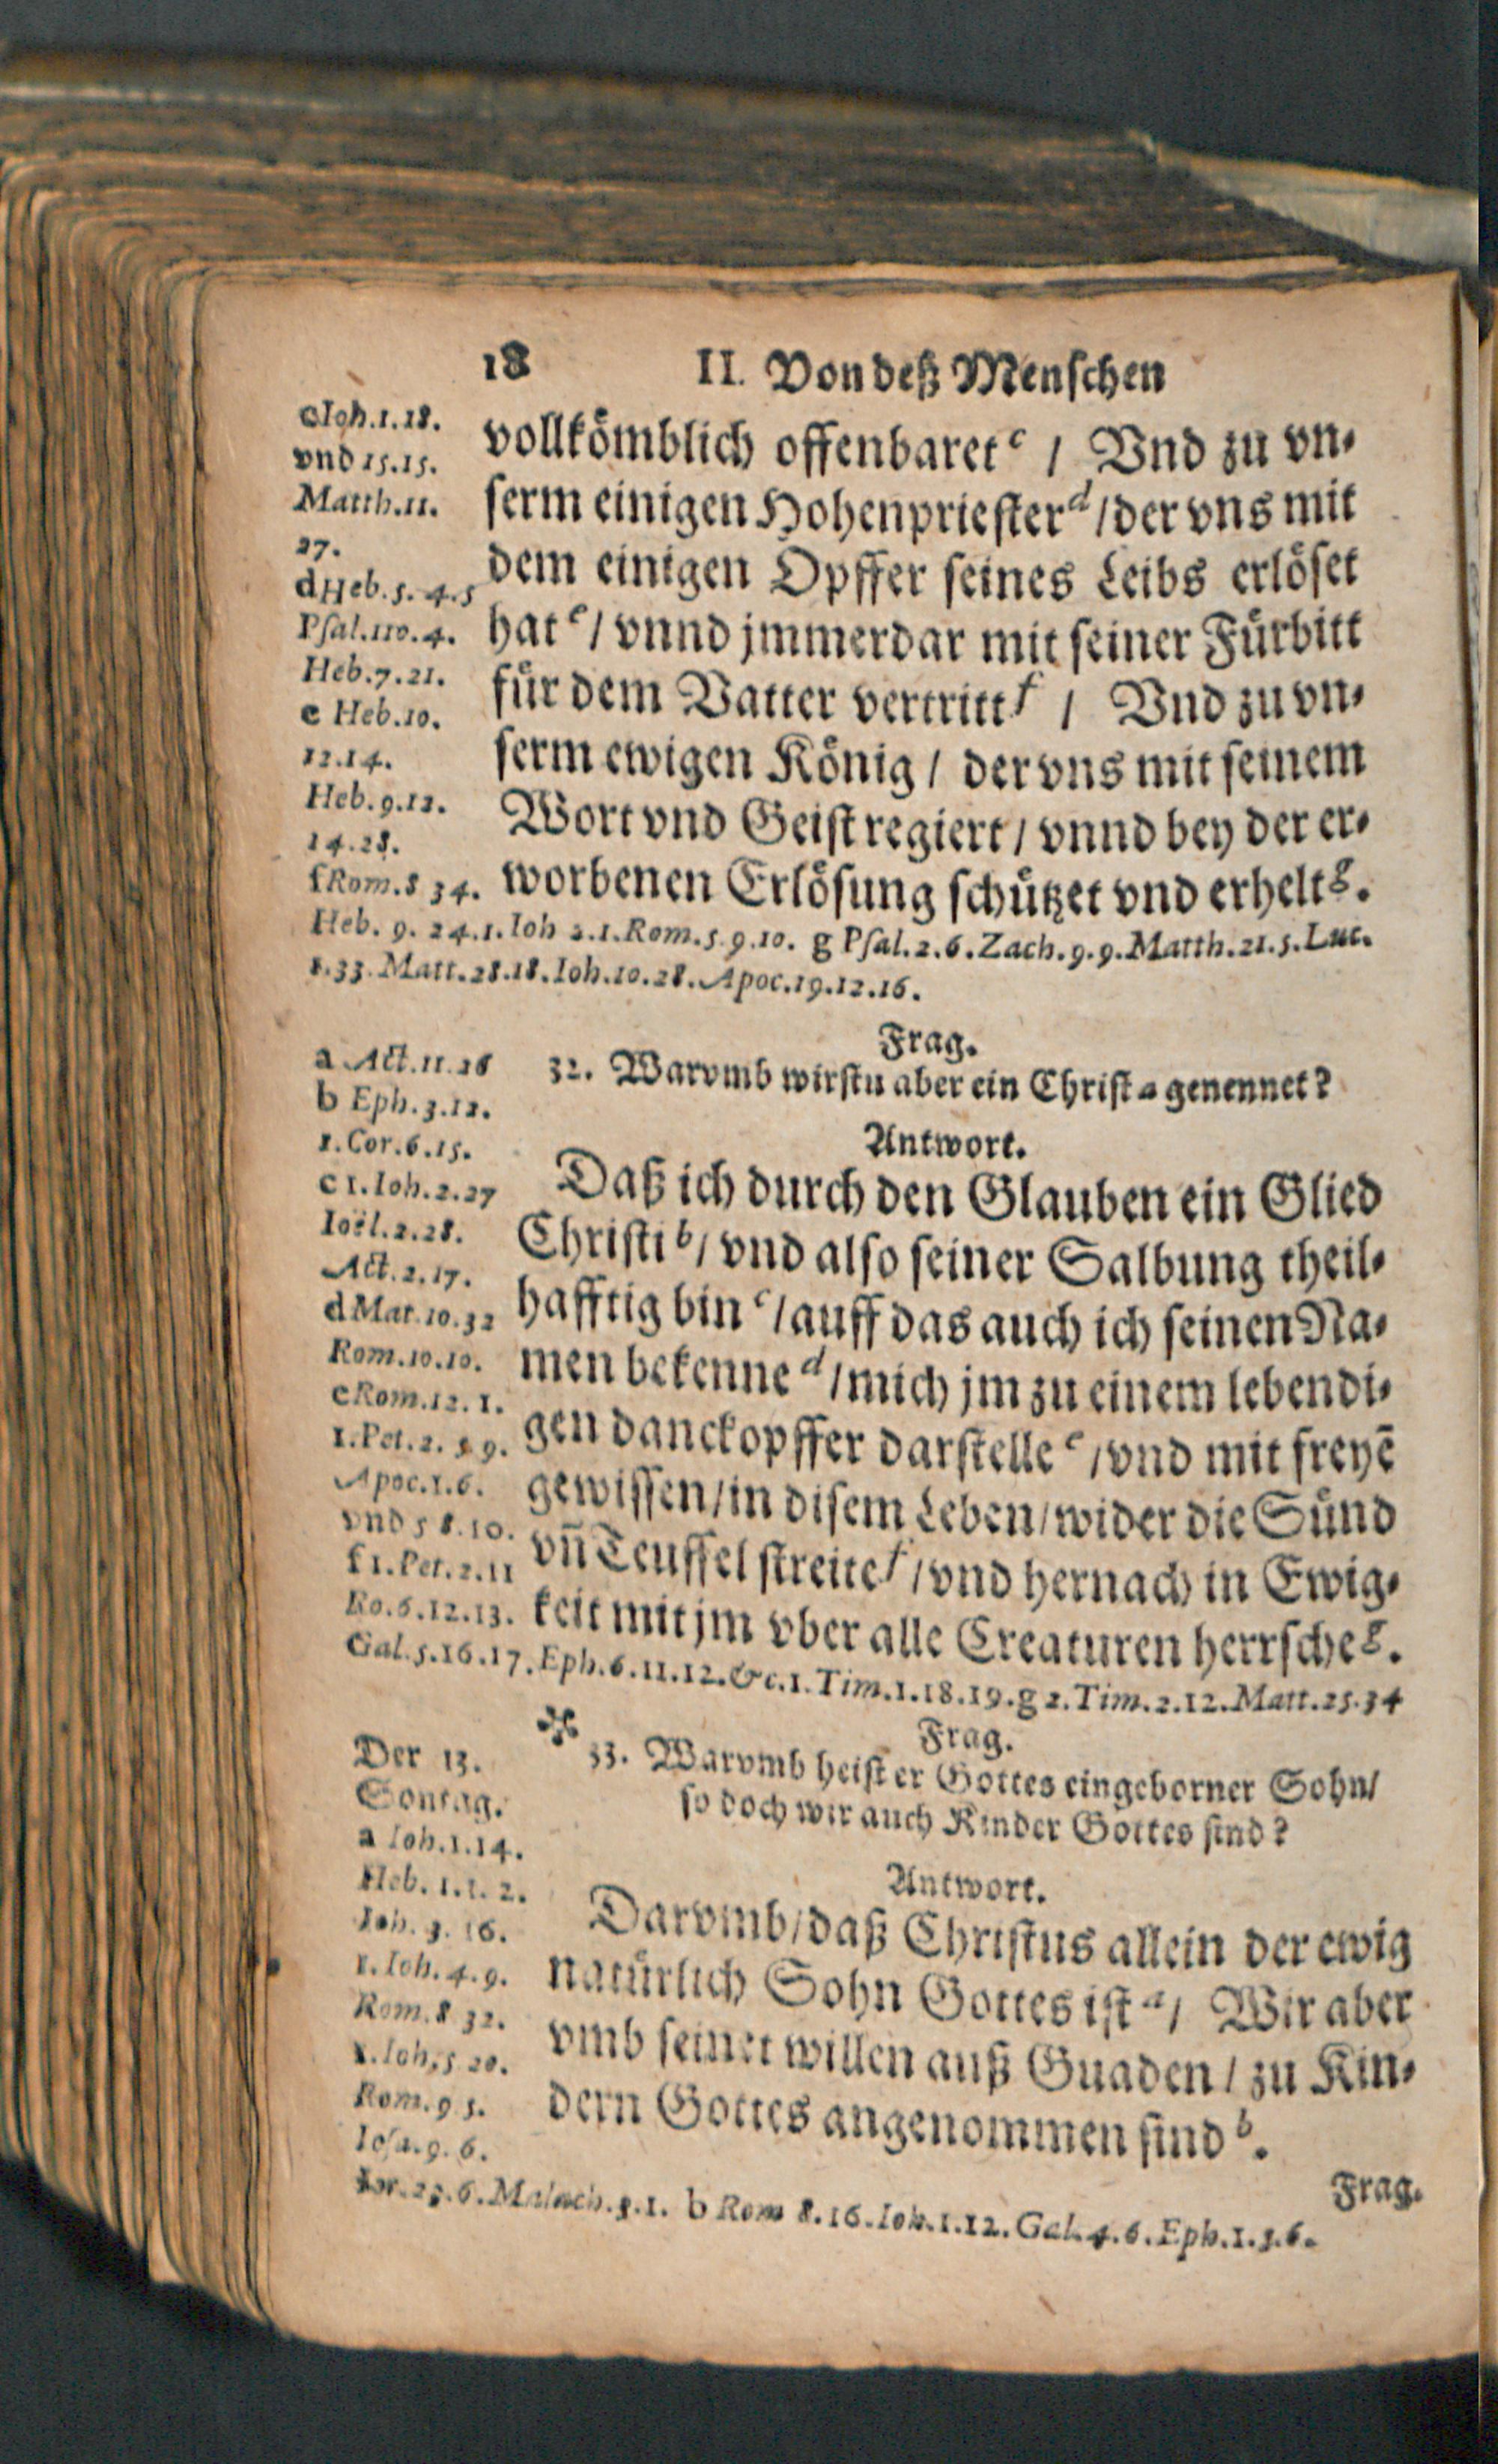 18 II. Von deß Menschen
c Ioh.1.18.
vnd 15.15.
Matth.11.
27.
d Heb.5.4.5
Psal.110.4.
Heb.7.21.
e Heb.10.
12.14.
Heb.9.12.
14.28.
f Rom.8 34.
vollkömblich offenbaret c / Vnd zu vn-
serm einigen Hohenpriester d / der vns mit
dem einigen Opffer seines Leibs erlöset
hat e / vnnd jmmerdar mit seiner Fürbitt
für dem Vatter vertritt f / Vnd zu vn-
serm ewigen König / der vns mit seinem
Wort vnd Geist regiert / vnnd bey der er-
worbenen Erlösung schützet vnd erhelt g.
Heb. 9. 24.1. Ioh 2.1. Rom.5.9.10. g Psal.2.6. Zach.9.9. Matth.21.5. Luc.
1.33. Matt.28.18. Ioh.10.28. Apoc.19.12.16.
a Act.11.26
b Eph.3.12.
1.Cor.6.15.
c 1.Ioh.2.27
Ioël.2.28.
Act.2.17.
d Mat.10.32
Rom.10.10.
e Rom.12.1.
1.Pet.2.5 9.
Apoc.1.6.
vnd 5 8.10.
f 1.Pet.2.11
Ro.6.12.13.
Frag.
32. Warvmb wirstu aber ein Christ a genennet?
Antwort.
Daß ich durch den Glauben ein Glied
Christi b / vnd also seiner Salbung theil-
hafftig bin c / auff das auch ich seinen Na-
men bekenne d / mich jm zu einem lebendi-
gen danckopffer darstelle e / vnd mit freyē
gewissen / in disem Leben / wider die Sünd
vn̄ Teuffel streite f / vnd hernach in Ewig-
keit mit jm vber alle Creaturen herrsche g.
Gal.5.16.17. Eph.6.11.12. &c. 1.Tim.1.18.19. g 2.Tim.2.12. Matt.25.34
Der 13.
Sontag.
a Ioh.1.14.
Heb. 1.1. 2.
Ioh. 3. 16.
1.Ioh.4.9.
Rom.8 32.
1.Ioh.5 20.
Rom.9 5.
Iesa.9.6.
Frag.
33. Warvmb heist er Gottes eingeborner Sohn/
so doch wir auch Kinder Gottes sind?
Antwort.
Darvmb / daß Christus allein der ewig
natürlich Sohn Gottes ist a / Wir aber
vmb seinet willen auß Gnaden / zu Kin-
dern Gottes angenommen sind b.
Ier.23.6. Malach.3.1. b Rom 8.16. Ioh.1.12. Gal.4.6. Eph.1.5.6.
Frag.